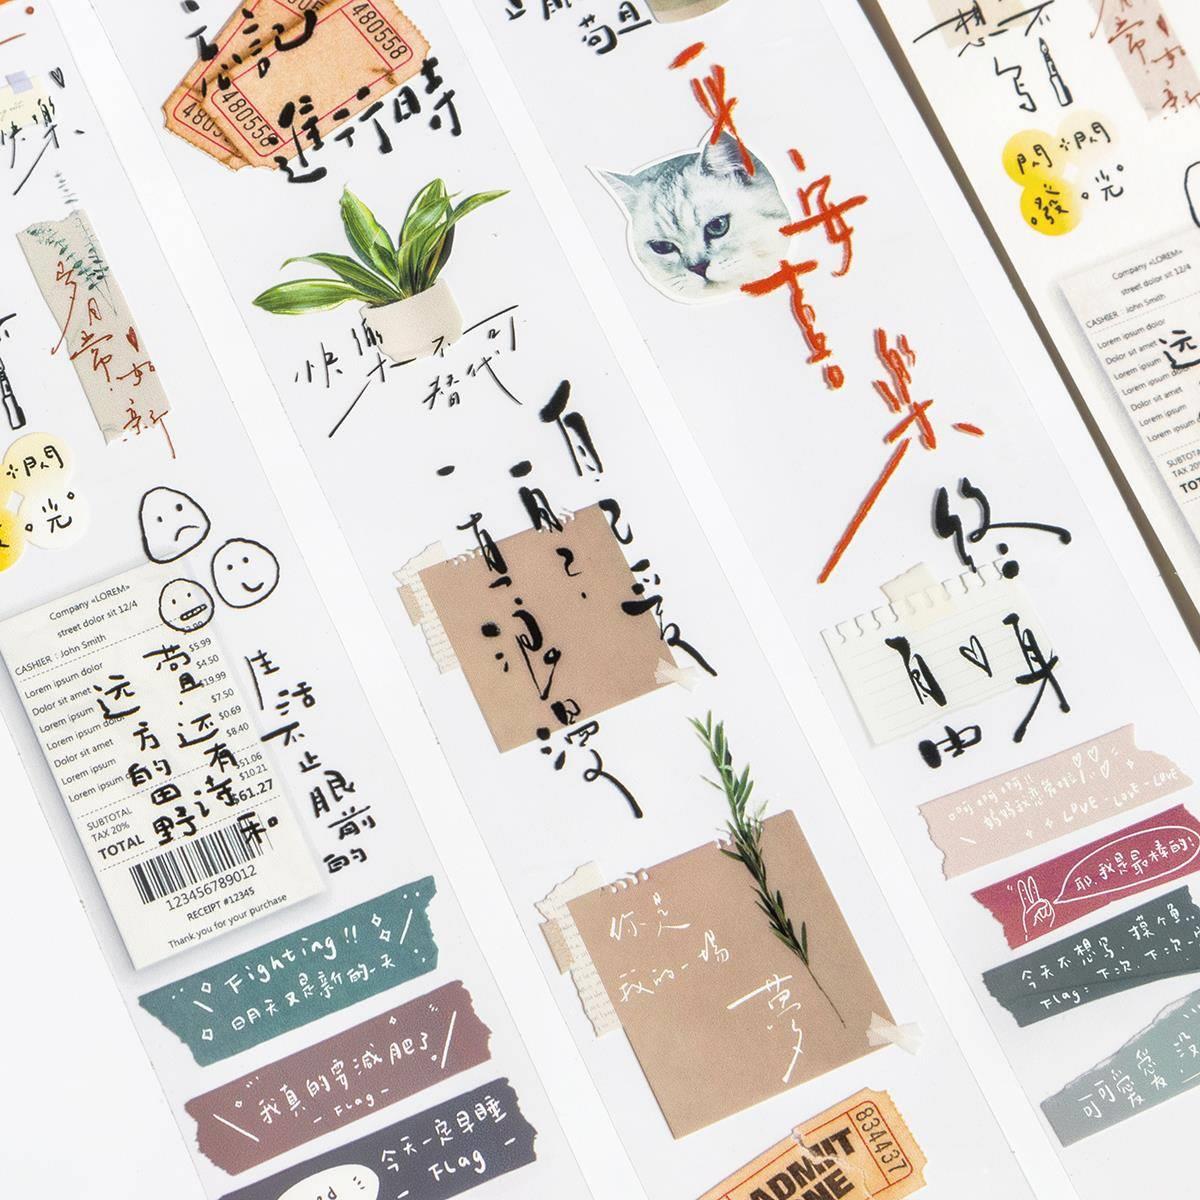 快樂
歲月
常如
新
閃閃
發光
忘記
進行時
480558
480558
快樂不可
替代
Company «LOREM»
street dolor sit 12/4
CASHIER : John Smith
Lorem ipsum dolor $5.99
Dolor sit amet $4.50
Lorem ipsum dolor $19.99
Lorem ipsum $7.50
Dolor sit amet $0.69
Lorem ipsum $8.40
Lorem ipsum
SUBTOTAL $51.06
TAX 20% $10.21
TOTAL $61.27
123456789012
RECEIPT #12345
Thank you for your purchase
生活不止眼前的
苟且還有詩和
远方的田野
Fighting!!
明天又是新的一天
我真的要減肥了
- Flag -
今天一定早睡
- Flag -
苟且
平安喜樂
自己愛
自己
一直浪漫
終
自由
身
你是
我的一場
夢
834437
ADMIT
ONE
媽媽我戀愛啦
LOVE - LOVE - LOVE
耶.我是最棒的!
今天不想寫.摸個魚..
Flag: 下次.下次一
可可愛愛.沒
想不
寫
閃閃
發光
Company «LOREM»
street dolor sit 12/4
CASHIER : John Smith
Lorem ipsum dolor
Dolor sit amet
Lorem ipsum
Dolor sit amet
Lorem ipsum
SUBTOTAL
TAX 20%
远